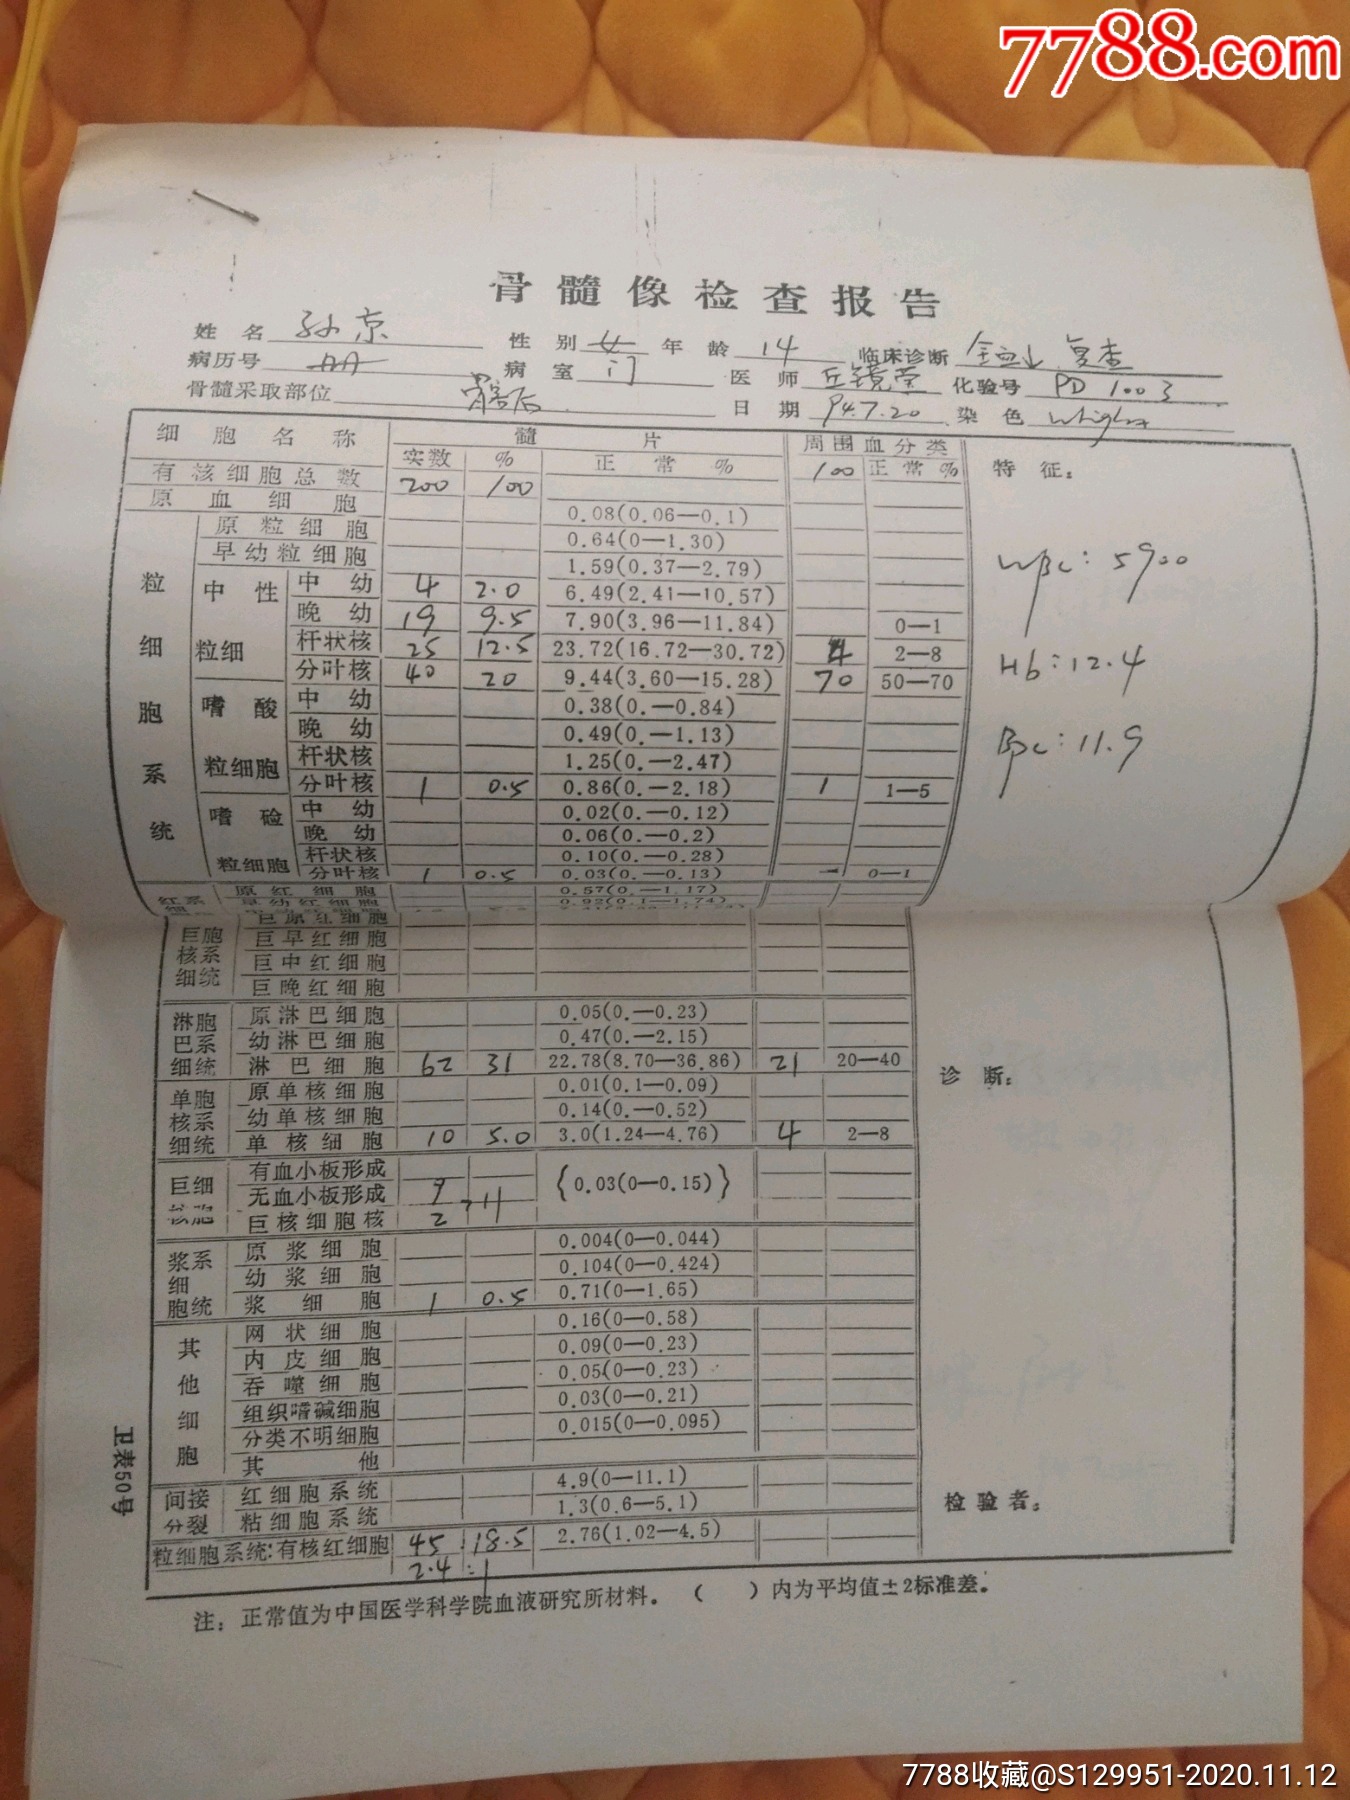 7788.com
骨髓像检查报告
姓名 孙京 性别 女 年龄 14 临床诊断 复查
病历号 病室 门 医师 丘镜莹 化验号 PD 1003
骨髓采取部位 髂后 日期 94.7.20 染色
细胞名称 髓片 周围血分类 特征:
实数 % 正常% 100 正常%
有核细胞总数 200 100
原血细胞 0.08(0.06—0.1)
粒细胞系统
原粒细胞 0.64(0—1.30)
早幼粒细胞 1.59(0.37—2.79)
中性粒细
中幼 4 2.0 6.49(2.41—10.57)
晚幼 19 9.5 7.90(3.96—11.84) 0—1
杆状核 25 12.5 23.72(16.72—30.72) 4 2—8
分叶核 40 20 9.44(3.60—15.28) 70 50—70
嗜酸粒细胞
中幼 0.38(0.—0.84)
晚幼 0.49(0.—1.13)
杆状核 1.25(0.—2.47)
分叶核 1 0.5 0.86(0.—2.18) 1 1—5
嗜硷粒细胞
中幼 0.02(0.—0.12)
晚幼 0.06(0.—0.2)
杆状核 0.10(0.—0.28)
分叶核 1 0.5 0.03(0.—0.13) — 0—1
WBC: 5900
Hb: 12.4
Bpc: 11.9
红系
原红细胞 0.57(0.—1.17)
早幼红细胞 0.92(0.1—1.74)
巨胞核系细统
巨原红细胞
巨早红细胞
巨中红细胞
巨晚红细胞
淋胞巴系细统
原淋巴细胞 0.05(0.—0.23)
幼淋巴细胞 0.47(0.—2.15)
淋巴细胞 62 31 22.78(8.70—36.86) 21 20—40
诊断:
单胞核系细统
原单核细胞 0.01(0.1—0.09)
幼单核细胞 0.14(0.—0.52)
单核细胞 10 5.0 3.0(1.24—4.76) 4 2—8
巨细核胞
有血小板形成
无血小板形成 9
{0.03(0—0.15)}
巨核细胞核 2 11
浆系细胞统
原浆细胞 0.004(0—0.044)
幼浆细胞 0.104(0—0.424)
浆细胞 1 0.5 0.71(0—1.65)
其他细胞
网状细胞 0.16(0—0.58)
内皮细胞 0.09(0—0.23)
吞噬细胞 0.05(0—0.23)
组织嗜碱细胞 0.03(0—0.21)
分类不明细胞 0.015(0—0.095)
其他
间接分裂
红细胞系统 4.9(0—11.1)
粘细胞系统 1.3(0.6—5.1)
检验者:
粒细胞系统:有核红细胞 45 : 18.5 2.76(1.02—4.5)
2.4 : 1
卫表50号
注: 正常值为中国医学科学院血液研究所材料。( )内为平均值±2标准差。
7788收藏@S129951-2020.11.12